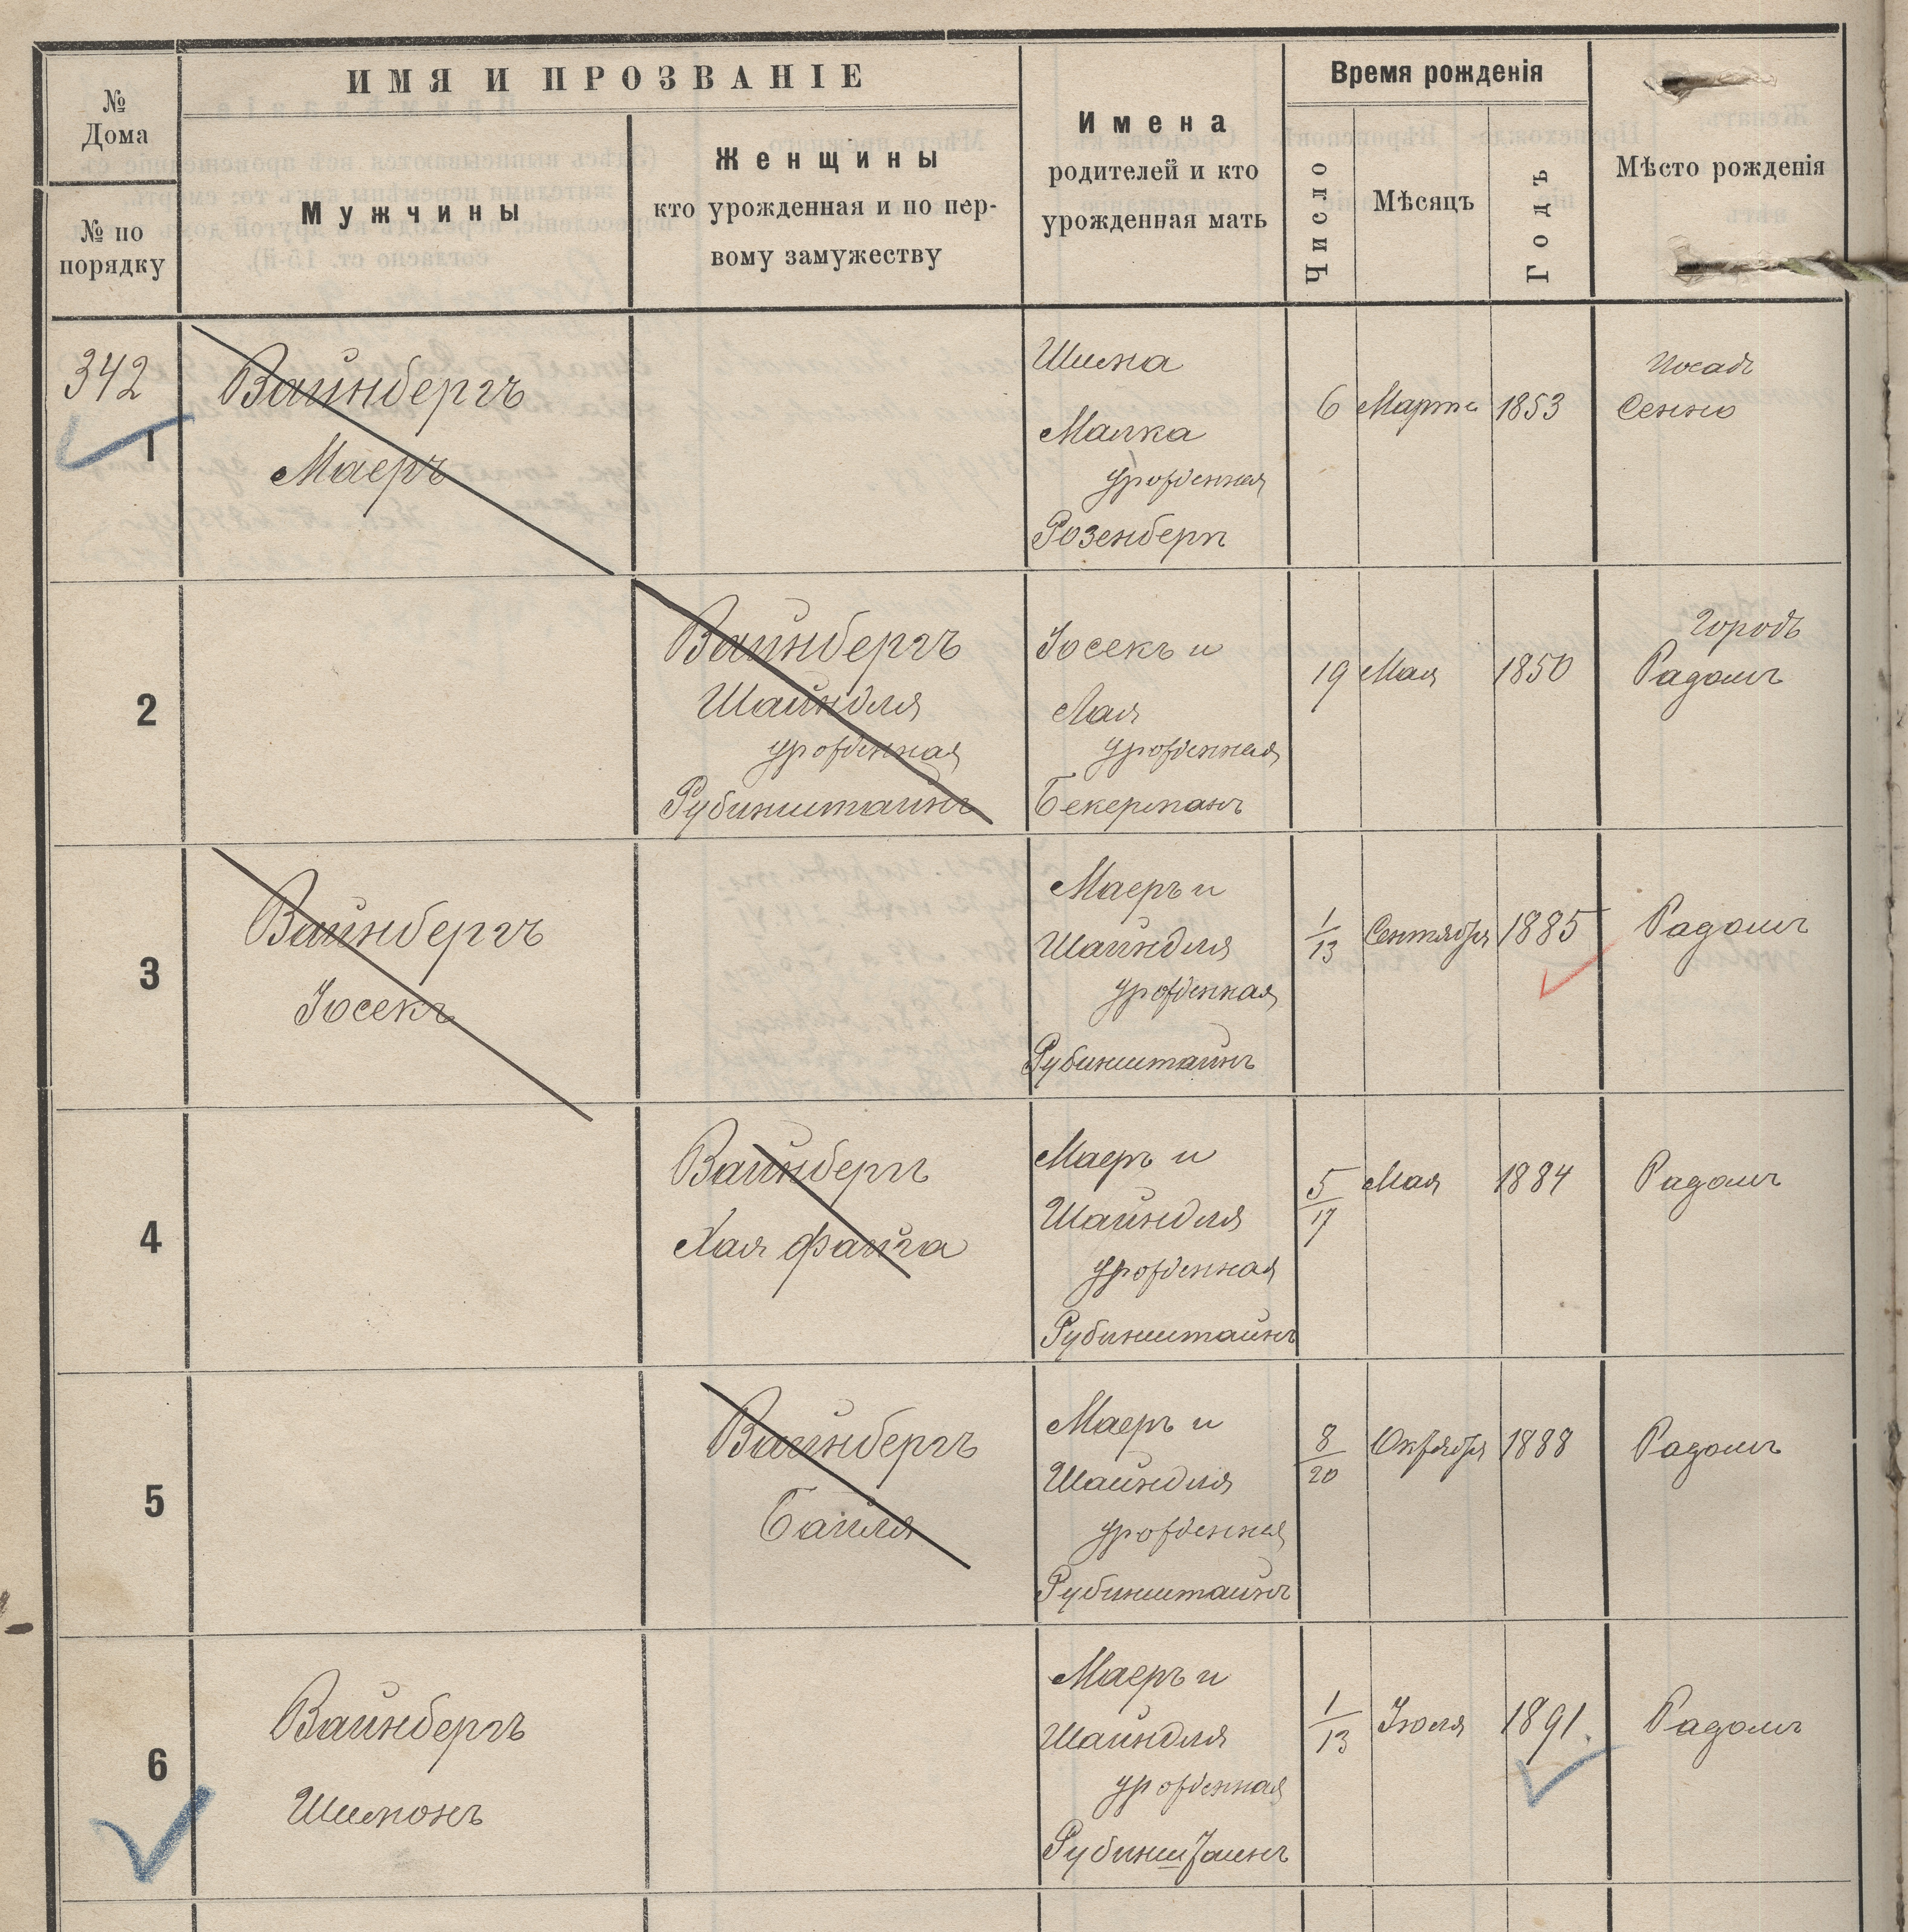 №
Дома
№ по
порядку
ИМЯ И ПРОЗВАНІЕ
Мужчины
Женщины
кто урожденная и по пер-
вому замужеству
Имена
родителей и кто
урожденная мать
Время рожденія
Число
Мѣсяцъ
Годъ
Мѣсто рожденія
342
1
Вайнбергъ
Маеръ
Малка
урожденная
Розенбергъ
6
Марта
1853
Посадъ
Сенно
2
Вайнбергъ
Шайндля
урожденная
Рубинштайнъ
Іосекъ и
Лая
урожденная
Бекерманъ
19
Мая
1850
Городъ
Радомъ
3
Вайнбергъ
Іосекъ
Маеръ и
Шайндля
урожденная
Рубинштайнъ
1/13
Сентября
1885
Радомъ
4
Вайнбергъ
Хая Файга
Маеръ и
Шайндля
урожденная
Рубинштайнъ
5/17
Мая
1884
Радомъ
5
Вайнбергъ
Байля
Маеръ и
Шайндля
урожденная
Рубинштайнъ
8/20
Октября
1888
Радомъ
6
Вайнбергъ
Шимонъ
Маеръ и
Шайндля
урожденная
Рубинштайнъ
1/13
Іюля
1891.
Радомъ